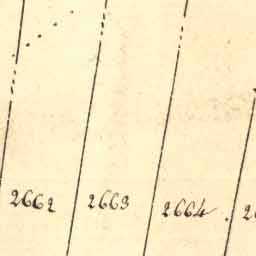 2662 2663 2664